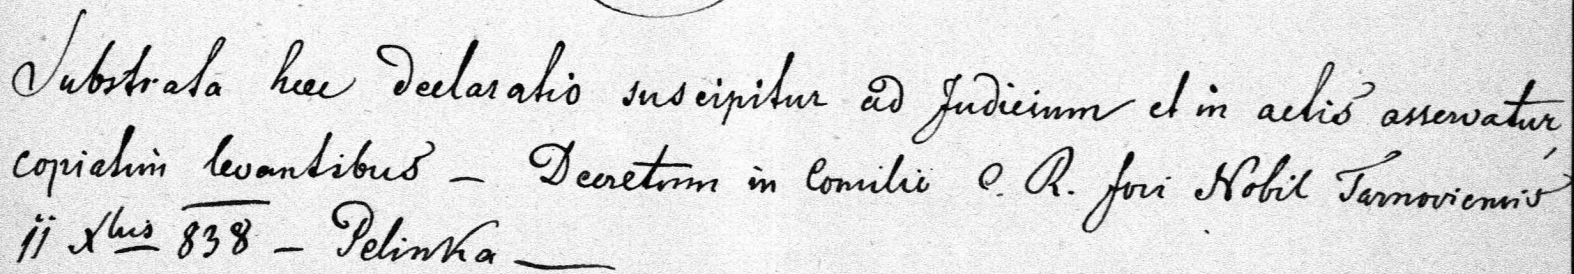 Substrata hæc declaratio suscipitur ad Judicium et in actis asservatur,
copiatim levantibus – Decretum in Consilio C. R. fori Nobil Tarnoviensis
11 Xbris 838 – Pelinka